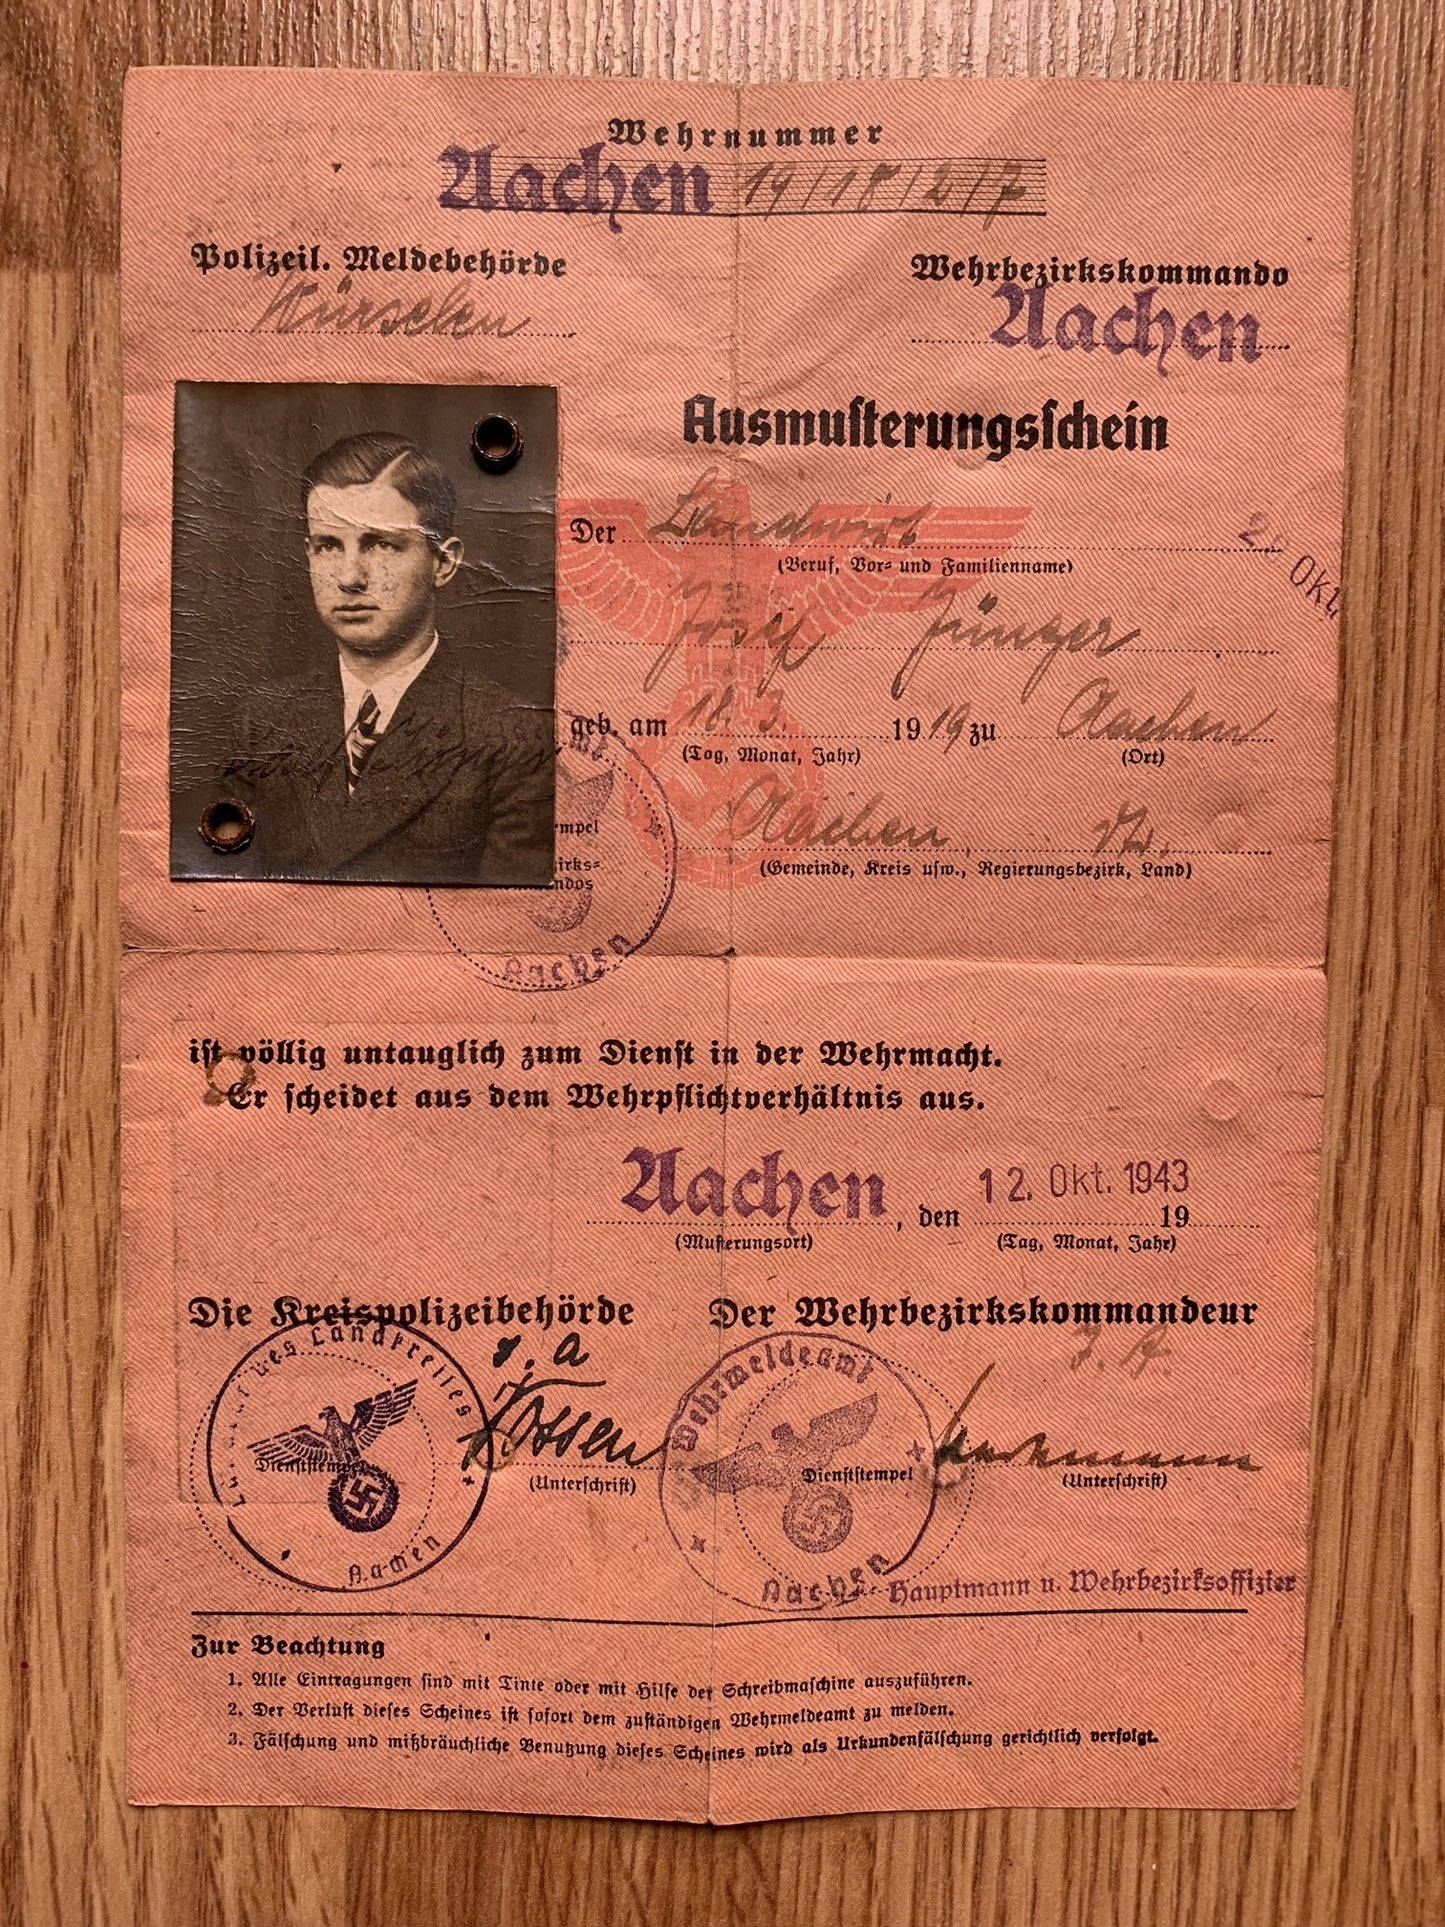 Wehrnummer
Aachen 19/18/2/7
Polizeil. Meldebehörde
Würselen
Wehrbezirkskommando
Aachen
Ausmuſterungsſchein
Der Landwirt
(Beruf, Vor= und Familienname)
2 Okt.
Josef Jünger
geb. am 18. 3. 1919 zu Aachen
(Tag, Monat, Jahr) (Ort)
Aachen,
(Gemeinde, Kreis uſw., Regierungsbezirk, Land)
Aachen
iſt völlig untauglich zum Dienſt in der Wehrmacht.
Er ſcheidet aus dem Wehrpflichtverhältnis aus.
Aachen, den 12. Okt. 1943 19
(Muſterungsort) (Tag, Monat, Jahr)
Die Kreispolizeibehörde
Der Wehrbezirkskommandeur
J. A.
J. A.
Landkreiſes
Aachen
Dienſtſtempel
(Unterſchrift)
Wehrmeldeamt
Aachen
Dienſtſtempel
(Unterſchrift)
Hauptmann u. Wehrbezirksoffizier
Zur Beachtung
1. Alle Eintragungen ſind mit Tinte oder mit Hilfe der Schreibmaſchine auszuführen.
2. Der Verluſt dieſes Scheines iſt ſofort dem zuſtändigen Wehrmeldeamt zu melden.
3. Fälſchung und mißbräuchliche Benutzung dieſes Scheines wird als Urkundenfälſchung gerichtlich verfolgt.